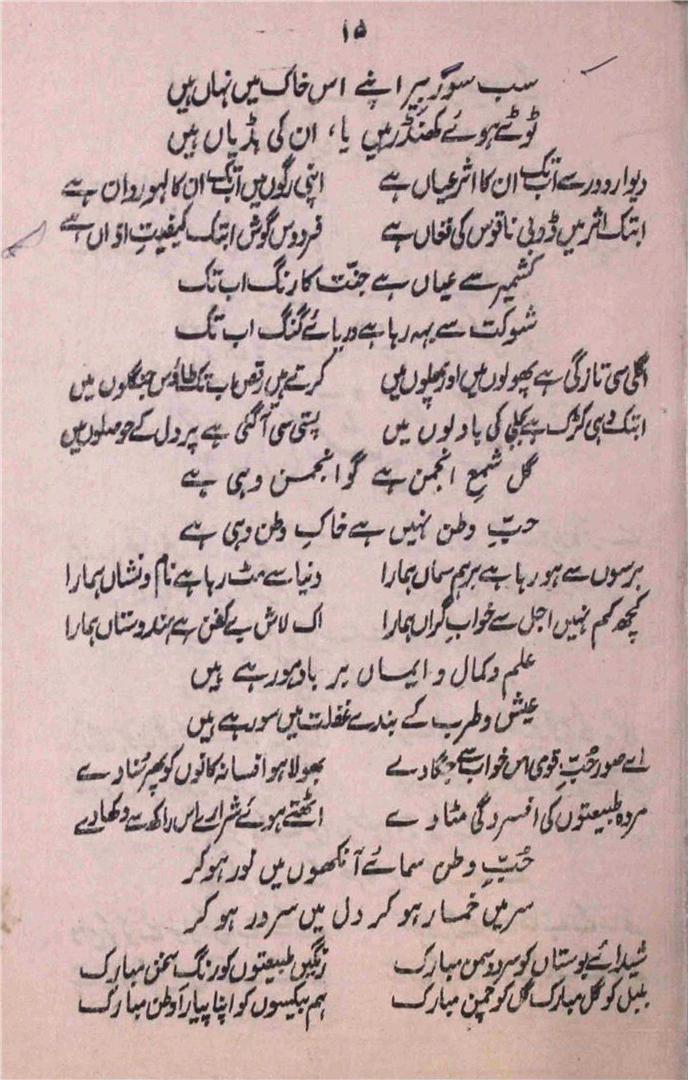 ۱۵
سب سور بیر اپنے اس خاک میں نہاں ہیں
ٹوٹے ہوئے کھنڈر ہیں یا، ان کی ہڈیاں ہیں
دیوار و در سے اب تک ان کا اثر عیاں ہے اپنی رگوں میں اب تک ان کا لہو رواں ہے
ابتک اثر میں ڈوبی ناقوس کی فغاں ہے فردوس گوش ابتک کیفیتِ اذاں ہے
کشمیر سے عیاں ہے جنت کا رنگ اب تک
شوکت سے بہہ رہا ہے دریائے گنگ اب تک
اگلی سی تازگی ہے پھولوں میں اور پھلوں میں کرتے ہیں رقص اب تک طاؤس جنگلوں میں
ابتک وہی کڑک ہے بجلی کی بادلوں میں پستی سی آ گئی ہے پر دل کے حوصلوں میں
گل شمعِ انجمن ہے گو انجمن وہی ہے
حبِّ وطن نہیں ہے خاکِ وطن وہی ہے
برسوں سے ہو رہا ہے برہم سماں ہمارا دنیا سے مٹ رہا ہے نام و نشاں ہمارا
کچھ کم نہیں اجل سے خوابِ گراں ہمارا اک لاش بے کفن ہے ہندوستاں ہمارا
علم و کمال و ایماں برباد ہو رہے ہیں
عیش و طرب کے بندے غفلت میں سو رہے ہیں
اے صور حُبِّ قومی اس خواب سے جگا دے بھولا ہوا فسانہ کانوں کو پھر سُنا دے
مردہ طبیعتوں کی افسردگی مٹا دے اٹھتے ہوئے شرارے اس راکھ سے دکھا دے
حُبِّ وطن سمائے آنکھوں میں نور ہو کر
سر میں خمار ہو کر دل میں سرور ہو کر
شیدائے بوستاں کو سرو و سمن مبارک رنگیں طبیعتوں کو رنگ سخن مبارک
بلبل کو گل مبارک گل کو چمن مبارک ہم بیکسوں کو اپنا پیارا وطن مبارک